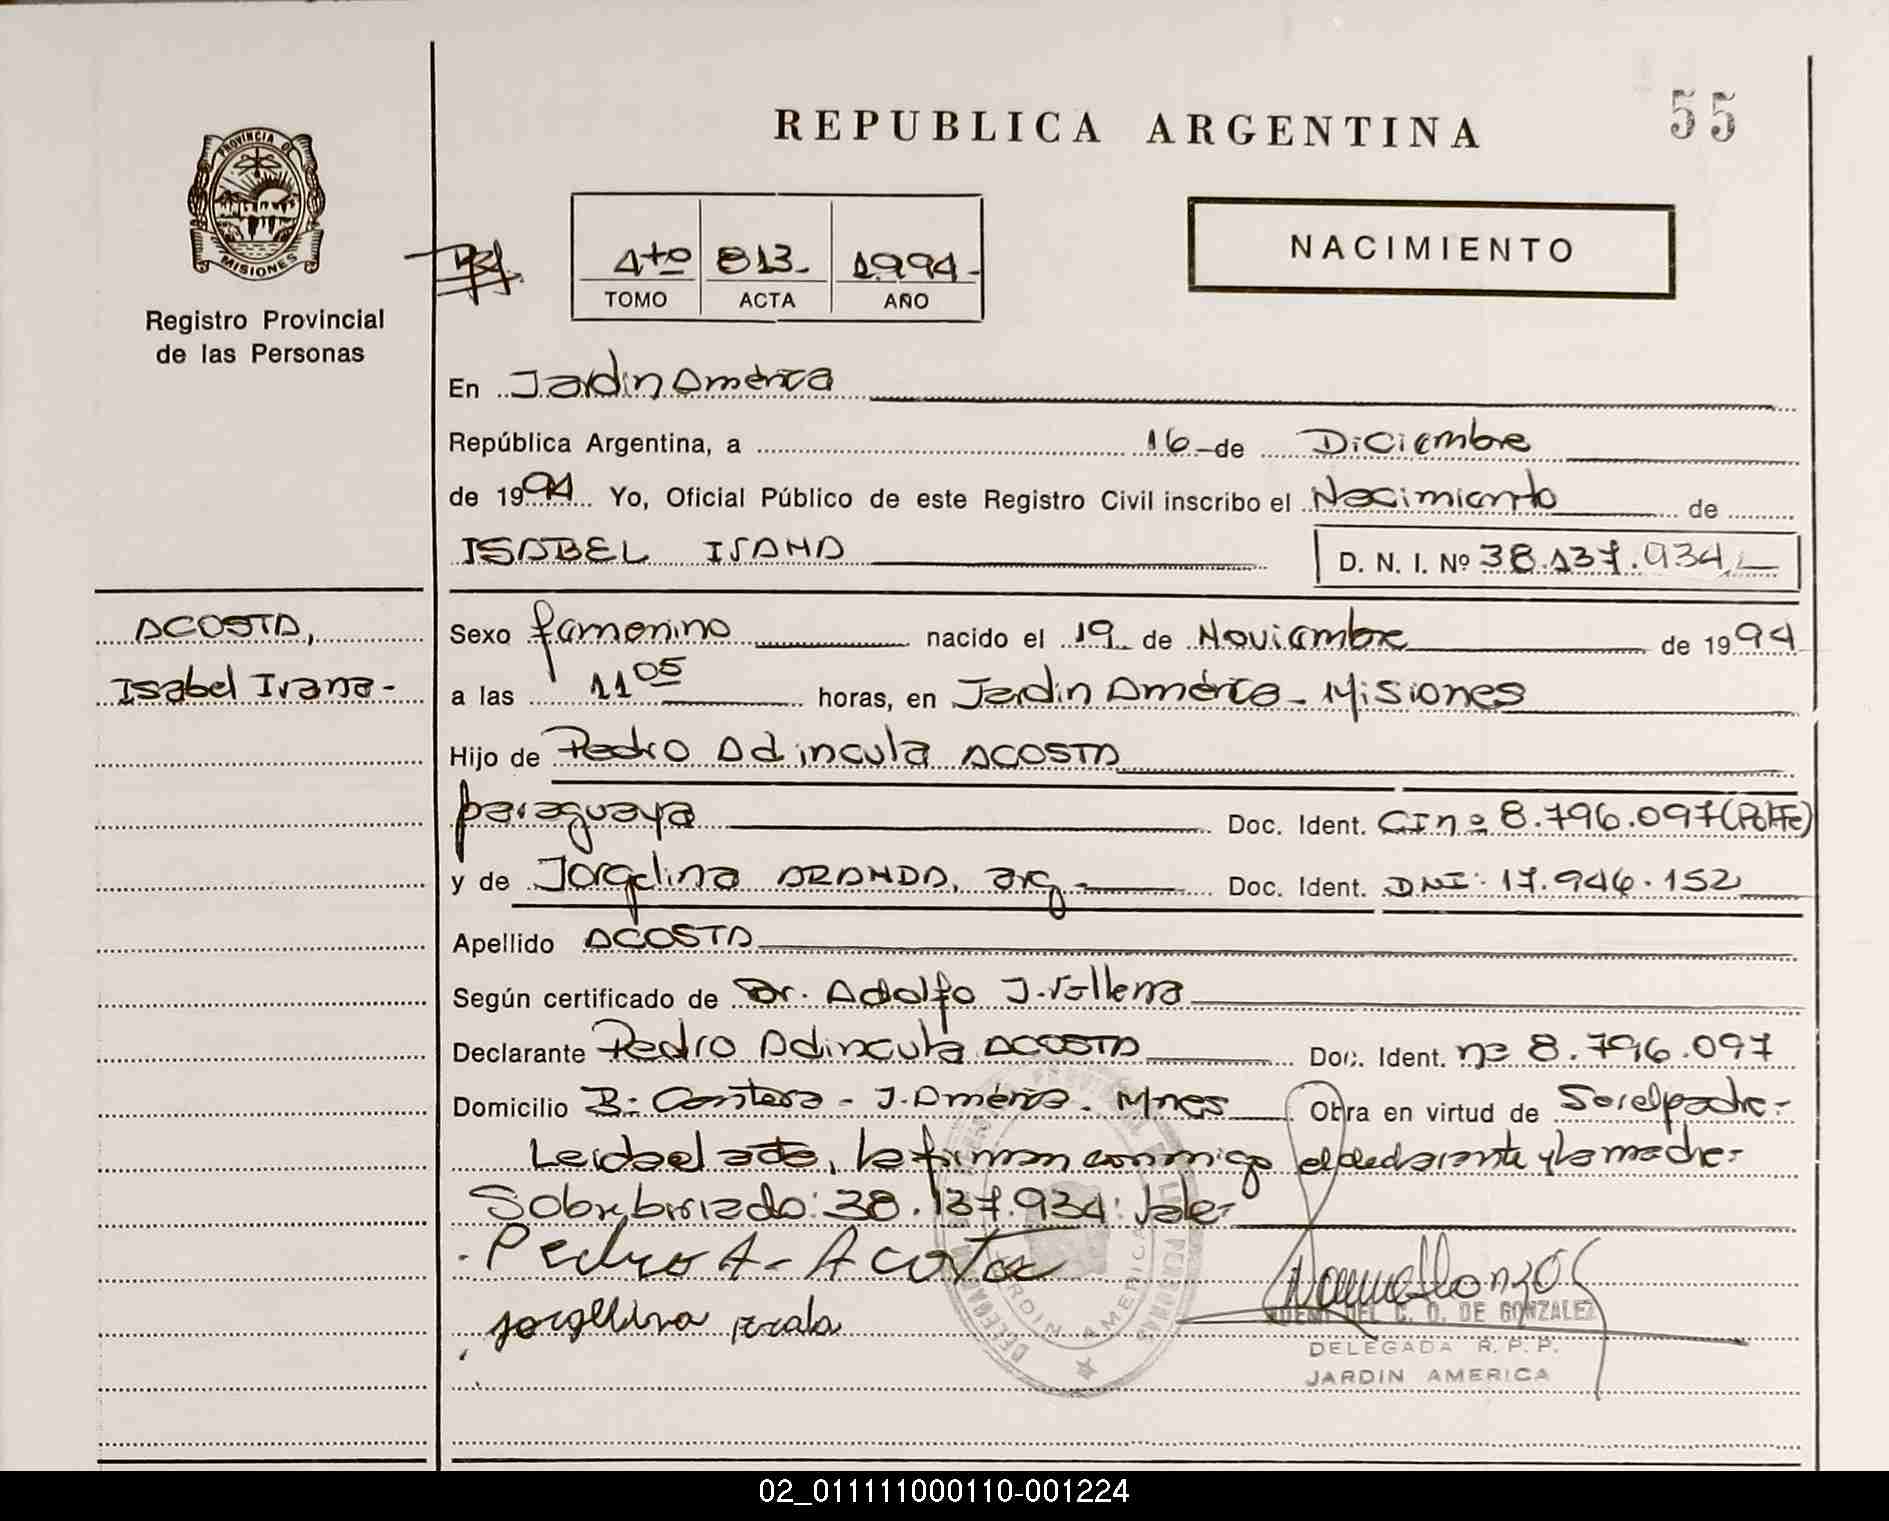 55
REPUBLICA ARGENTINA
PROVINCIA DE
MISIONES
Registro Provincial
de las Personas
4to 813- 1994-
TOMO ACTA AÑO
NACIMIENTO
En Jardín América
República Argentina, a 16 - de Diciembre
de 1994 Yo, Oficial Público de este Registro Civil inscribo el Nacimiento de
ISABEL IVANA D. N. I. Nº 38.137.934.-
ACOSTA,
Isabel Ivana-
Sexo femenino nacido el 19 de Noviembre de 1994
a las 11 05 horas, en Jardín América - Misiones
Hijo de Pedro Adincula ACOSTA
paraguaya Doc. Ident. CI nº 8.796.097 (Pol Fe)
y de Jorgelina ARANDA, arg.- Doc. Ident. DNI: 17.946.152
Apellido ACOSTA
Según certificado de Dr. Adolfo J.
Declarante Pedro Adincula ACOSTA Doc. Ident. nº 8.796.097
Domicilio Bº Cantera - J. América. Mnes Obra en virtud de Ser el padre-
Leida el acta, la firman conmigo el declarante y la madre-
Sobreborrado: 38.137.934: Vale-
Pedro A- Acosta
DE GONZALEZ
DELEGADA R. P. P.
JARDIN AMERICA
JARDIN AMERICA
02_011111000110-001224